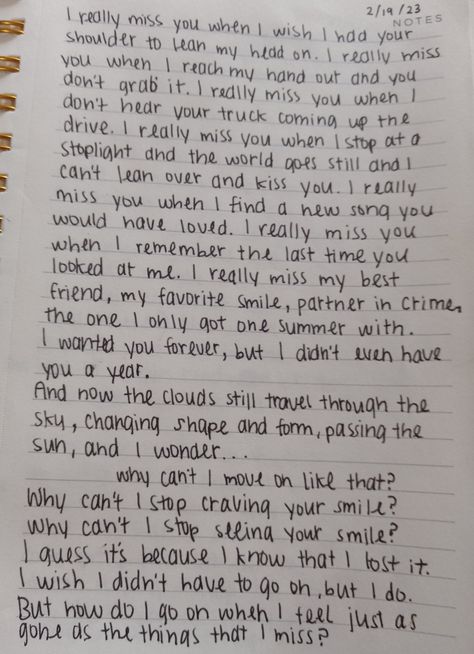 2/19/23
NOTES
I really miss you when I wish I had your
shoulder to lean my head on. I really miss
you when I reach my hand out and you
don't grab it. I really miss you when I
don't hear your truck coming up the
drive. I really miss you when I stop at a
stoplight and the world goes still and I
can't lean over and kiss you. I really
miss you when I find a new song you
would have loved. I really miss you
when I remember the last time you
looked at me. I really miss my best
friend, my favorite smile, partner in crime,
the one I only got one summer with.
I wanted you forever, but I didn't even have
you a year.
And now the clouds still travel through the
sky, changing shape and form, passing the
sun, and I wonder...
why can't I move on like that?
Why can't I stop craving your smile?
Why can't I stop seeing your smile?
I guess it's because I know that I lost it.
I wish I didn't have to go on, but I do.
But how do I go on when I feel just as
gone as the things that I miss?